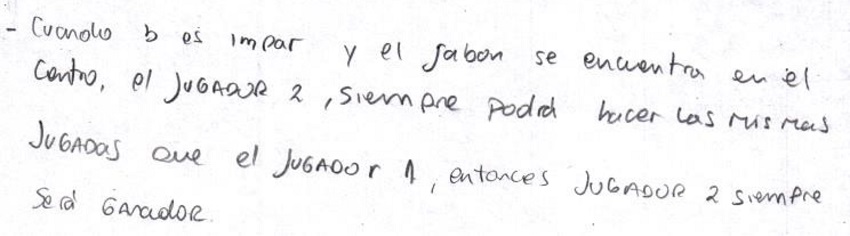 - Cuando b es impar y el jabon se encuentra en el
Centro, el JUGADOR 2, siempre podrá hacer las mismas
JUGADAS que el JUGADOR 1, entonces JUGADOR 2 siempre
será GANADOR.